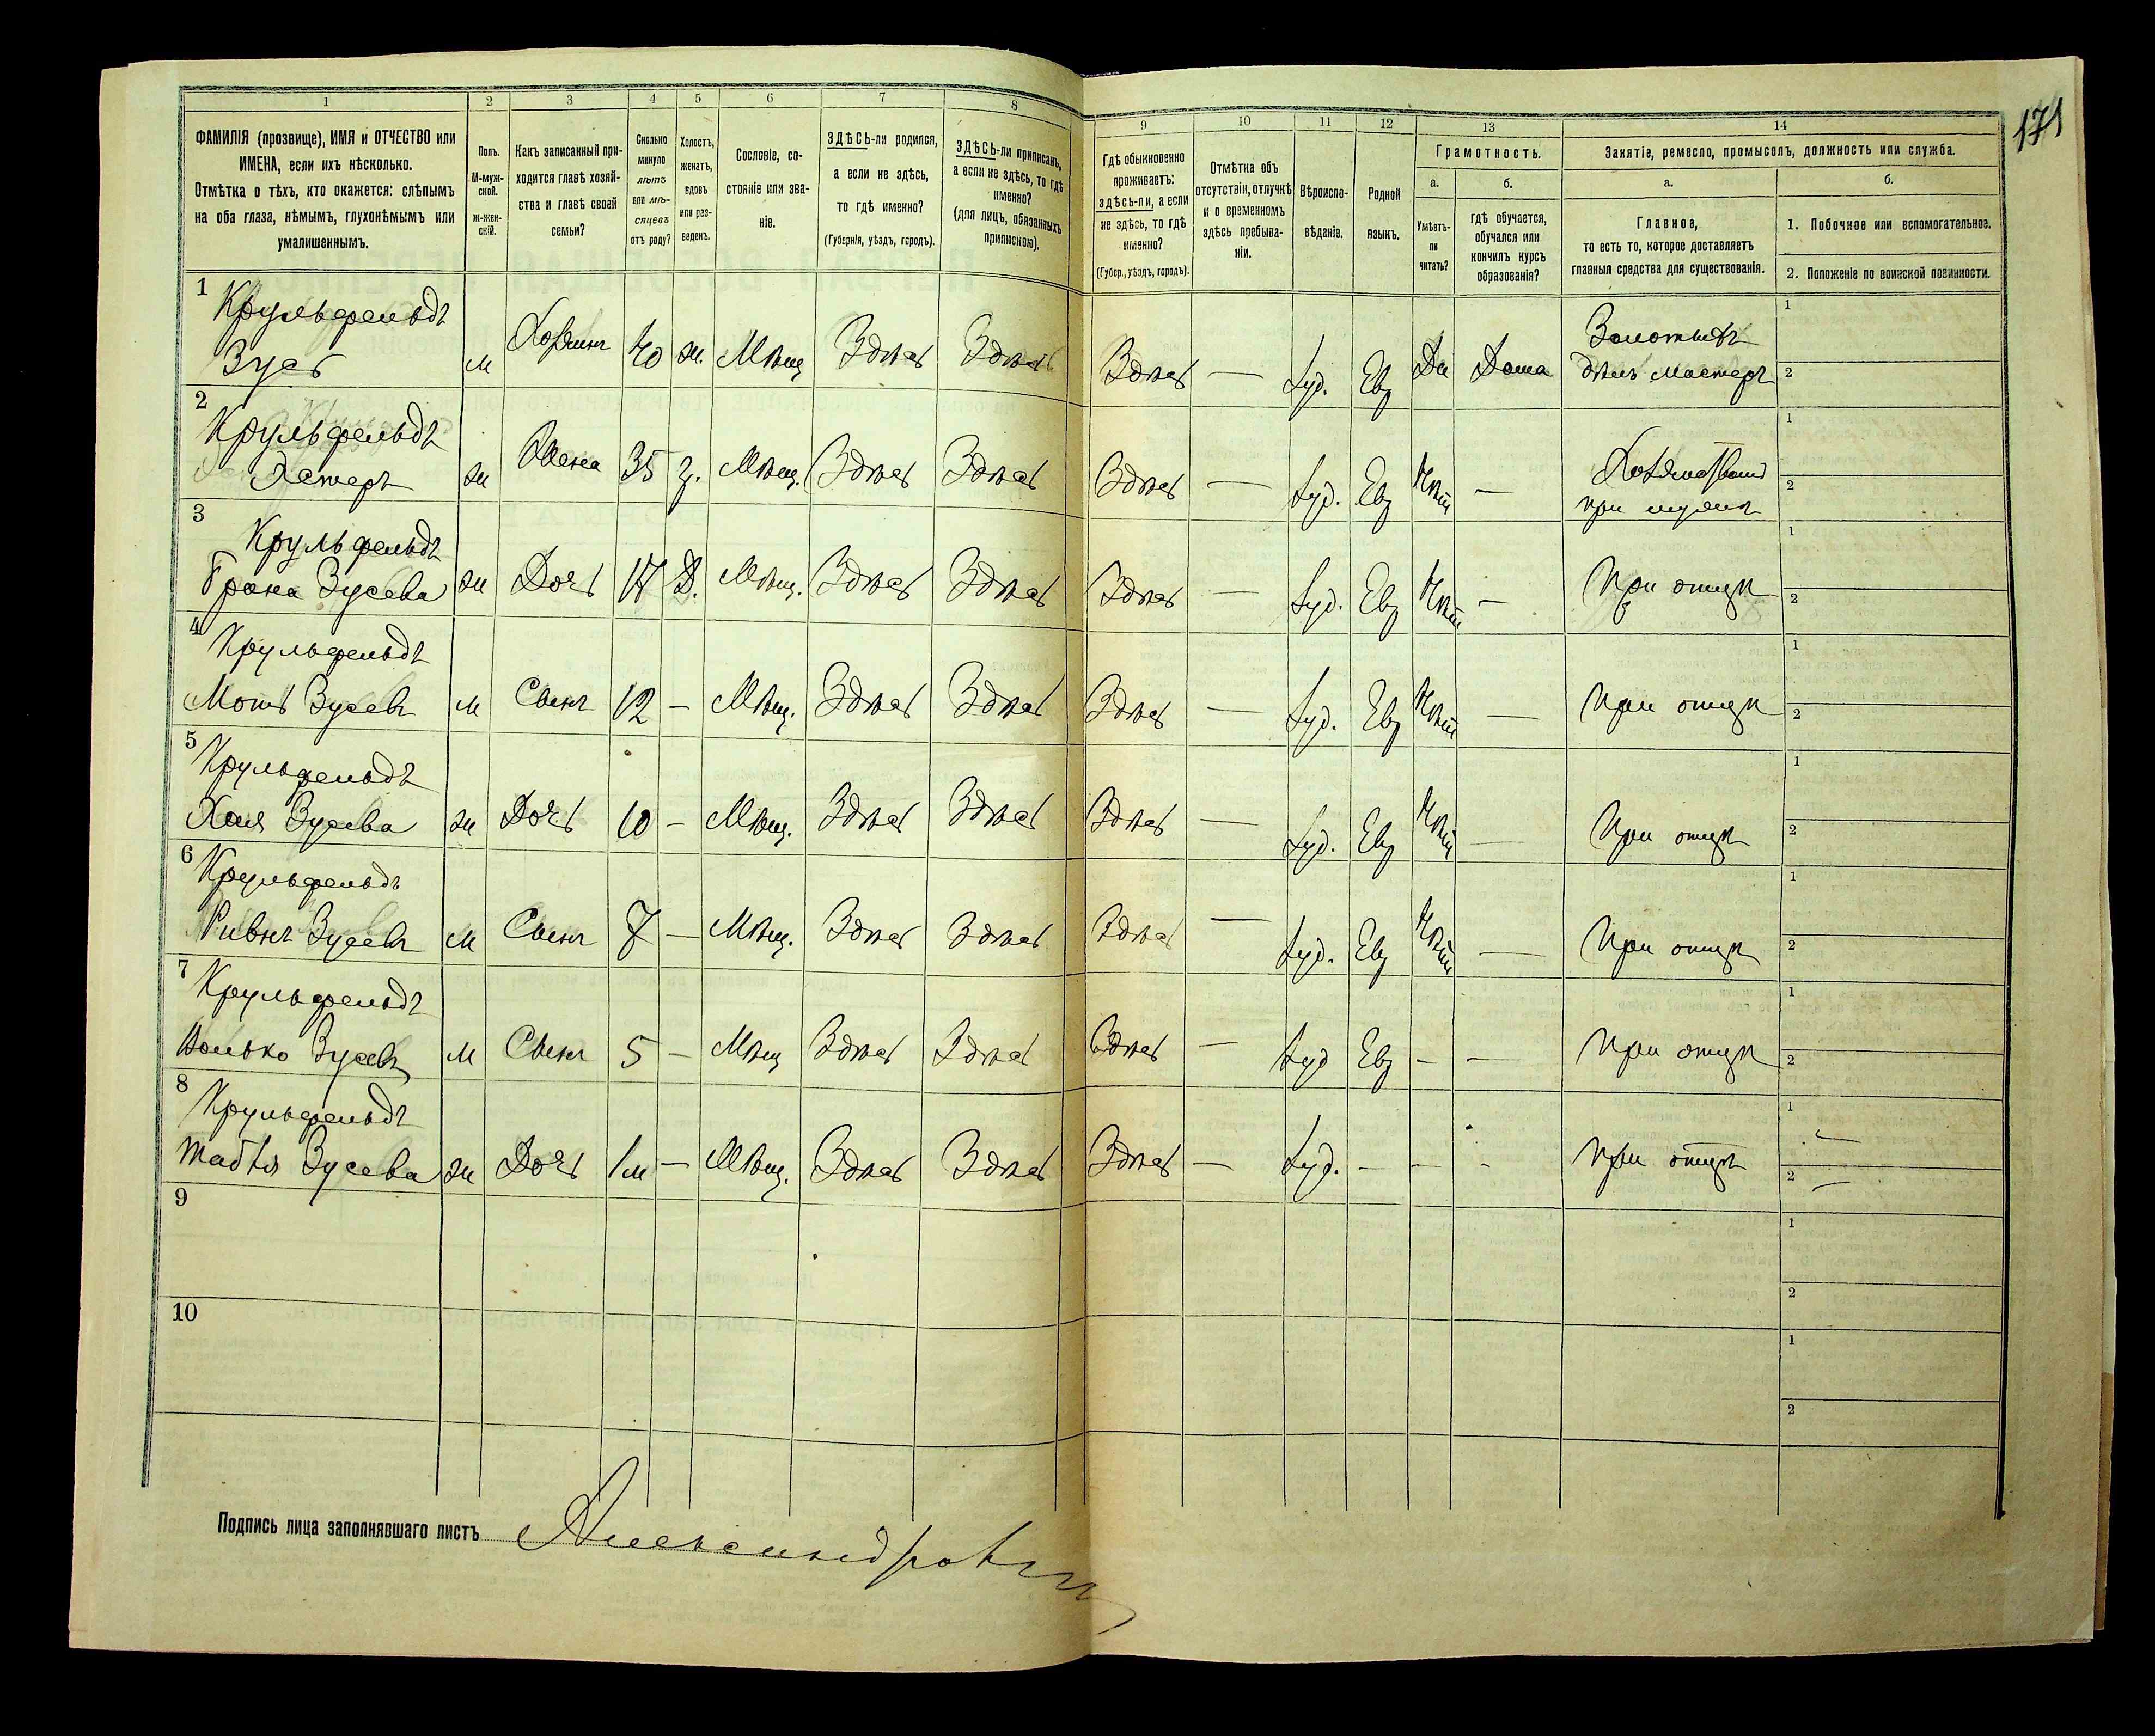 171
1 2 3 4 5 6 7 8 9 10 11 12 13 14
ФАМИЛІЯ (прозвище), ИМЯ и ОТЧЕСТВО или
ИМЕНА, если ихъ нѣсколько.
Отмѣтка о тѣхъ, кто окажется: слѣпымъ
на оба глаза, нѣмымъ, глухонѣмымъ или
умалишеннымъ.
Полъ.
М-муж-
ской.
ж-жен-
скій.
Какъ записанный при-
ходится главѣ хозяй-
ства и главѣ своей
семьи?
Сколько
минуло
лѣтъ
или мѣ-
сяцевъ
отъ роду?
Холостъ,
женатъ,
вдовъ
или раз-
веденъ.
Сословіе, со-
стояніе или зва-
ніе.
ЗДѢСЬ-ли родился,
а если не здѣсь,
то гдѣ именно?
(Губернія, уѣздъ, городъ).
ЗДѢСЬ-ли приписанъ,
а если не здѣсь, то гдѣ
именно?
(для лицъ, обязанныхъ
припискою).
Гдѣ обыкновенно
проживаетъ:
здѣсь-ли, а если
не здѣсь, то гдѣ
именно?
(Губер., уѣздъ, городъ).
Отмѣтка объ
отсутствіи, отлучкѣ
и о временномъ
здѣсь пребыва-
ніи.
Вѣроиспо-
вѣданіе.
Родной
языкъ.
Грамотность.
а.
Умѣетъ-
ли
читать?
б.
гдѣ обучается,
обучался или
кончилъ курсъ
образованія?
Занятіе, ремесло, промыселъ, должность или служба.
а.
Главное,
то есть то, которое доставляетъ
главныя средства для существованія.
б.
1. Побочное или вспомогательное.
2. Положеніе по воинской повинности.
1 Крульфельдъ
Зусь м Хозяинъ 40 ж. Мѣщ Здѣсь Здѣсь Здѣсь — Іуд. Евр Да Дома Золотыхъ
дѣлъ мастеръ 1 2
2 Крульфельдъ
Хестеръ ж Жена 35 з. Мѣщ. Здѣсь Здѣсь Здѣсь — Іуд. Евр Нѣт — Хозяйство
при мужѣ 1 2
3 Крульфельдъ
Зусева ж Дочь 17 Д. Мѣщ. Здѣсь Здѣсь Здѣсь — Іуд. Евр Нѣт — При отцѣ 1 2
4 Крульфельдъ
Моть Зусевъ м Сынъ 12 — Мѣщ. Здѣсь Здѣсь Здѣсь — Іуд. Евр Нѣт — При отцѣ 1 2
5 Крульфельдъ
Хая Зусева ж Дочь 10 — Мѣщ. Здѣсь Здѣсь Здѣсь — Іуд. Евр Нѣт — При отцѣ 1 2
6 Крульфельдъ
Ривнъ Зусевъ м Сынъ 7 — Мѣщ. Здѣсь Здѣсь Здѣсь — Іуд. Евр Нѣт — При отцѣ 1 2
7 Крульфельдъ
Волько Зусевъ м Сынъ 5 — Мѣщ Здѣсь Здѣсь Здѣсь — Іуд Евр — — При отцѣ 1 2
8 Крульфельдъ
Зусева ж Дочь 1м — Мѣщ. Здѣсь Здѣсь Здѣсь — Іуд. — — - При отцѣ 1 — 2 —
9 1 2
10 1 2
Подпись лица заполнявшаго листъ